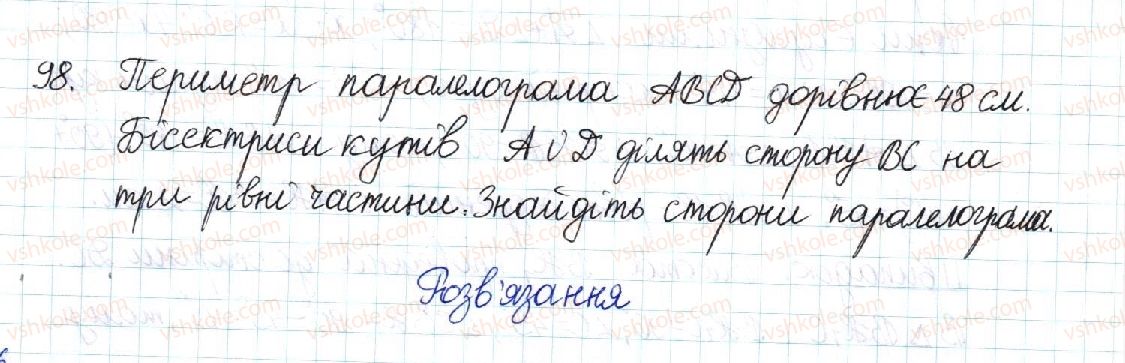 98. Периметр паралелограма ABCD дорівнює 48 см.
Бісектриси кутів A і D ділять сторону BC на
три рівні частини. Знайдіть сторони паралелограма.
Розв'язання